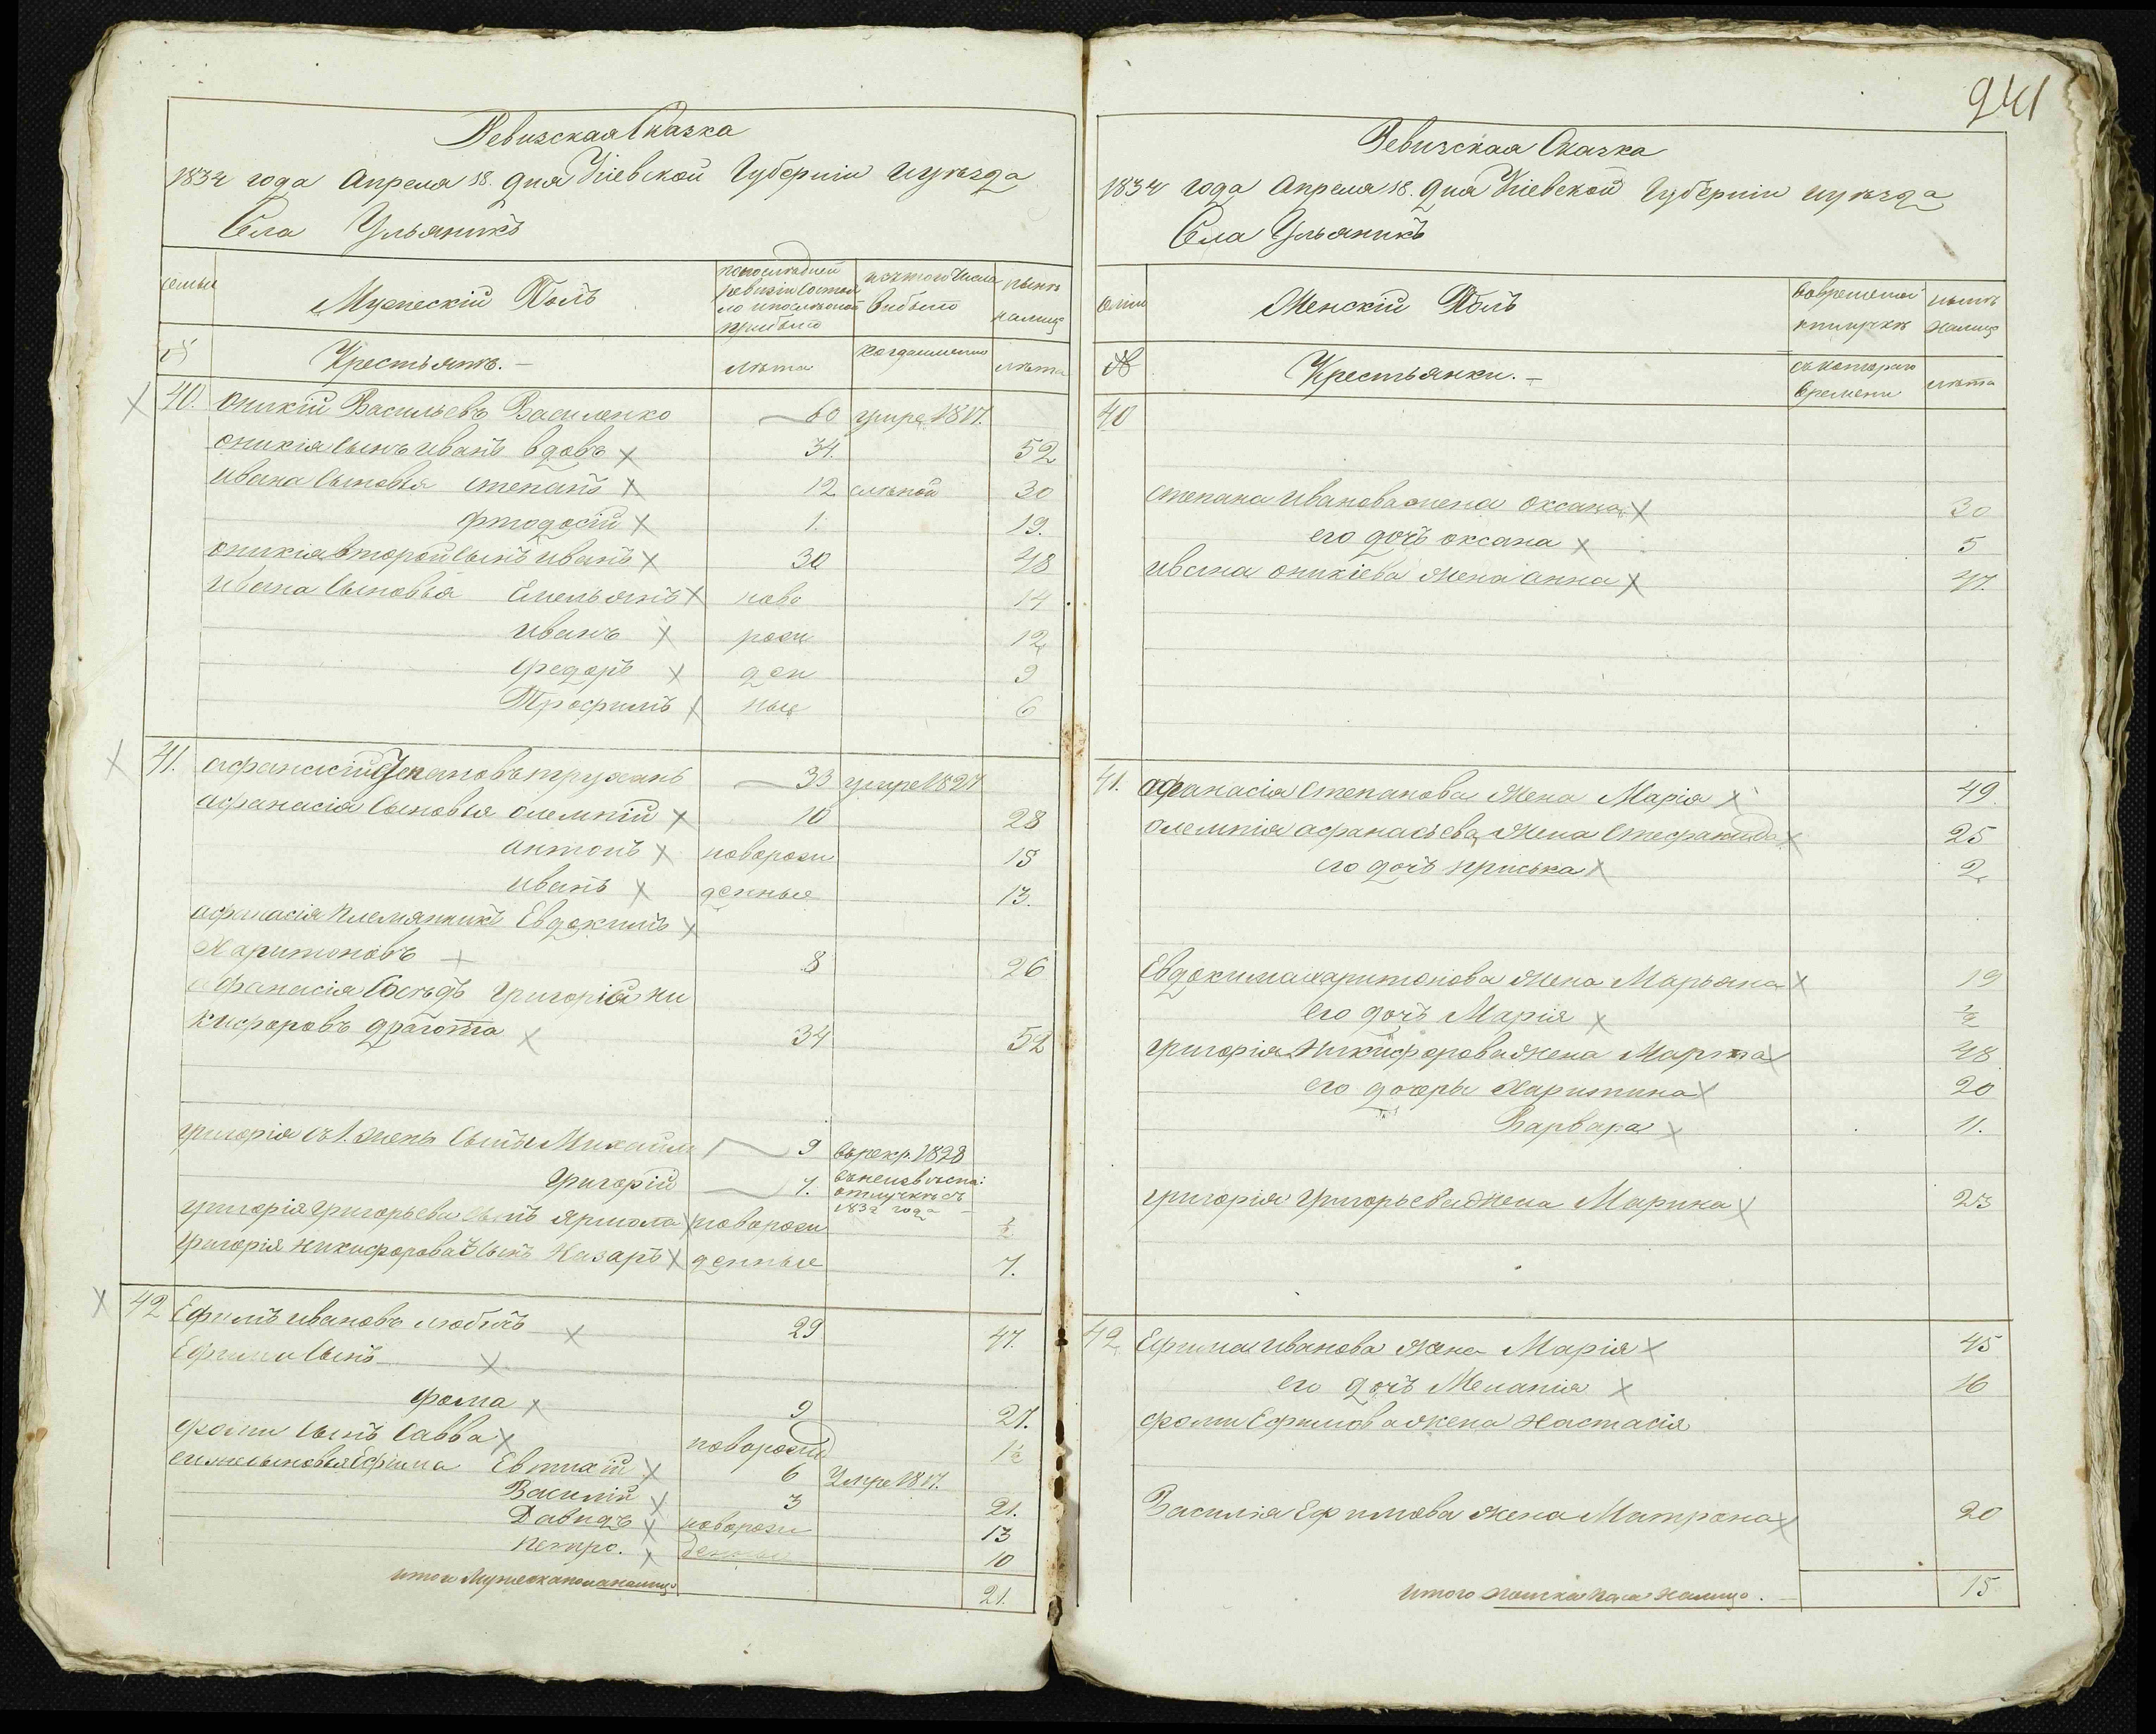 241
Ревизская Сказка
1834 года Апреля 18. дня Кіевской Губерніи и уѣзда
Села Ульяникъ
семьи
Мужескій Полъ
по последней ревизіи состояло и после оной прибыло
изъ того числа выбыло
нынѣ на лицо
№
Крестьянѣ. —
лѣта
когда именно
лѣта
40. Оникій Васильевъ Василенко 60 умре 1817.
оникія сынъ иванъ вдовъ 34. 52
ивана сыновья степанъ 12 слѣпой 30
фтодосій 1. 19.
оникія второй сынъ иванъ 30 48
ивана сыновья Емельянъ ново 14
иванъ рож 12
федоръ ден 9
Трофимъ ные 6
41. афанасій Степановъ 33 умре 1827
афанасія сыновья олемпій 10 28
антонъ новорож 18
иванъ денные 13.
афанасія племянникъ Евдокимъ
Харитоновъ 8 26
афанасія сосѣдъ Григорій ни
кифоровъ драгота 34 52
григорія съ 1. жены сыны Михаилъ 9 въ рекр. 1828
Григорій 7. въ отлучкѣ съ 1832 года
григорія Григорьева сынъ ярмола новорож ½
григорія никифорова сынъ Назаръ денные 7.
42 Ефимъ ивановъ 29 47.
Ефима сынъ
фома 9 27.
фомы сынъ Савва новорожд 1½
его же сыновья Ефима Евтихій 6 Умре 1817.
Василій 3 21.
Давидъ новорож 13
петро. денные 10
итого мужеска пола налицо 21.
Ревизская Сказка
1834 года Апреля 18. дня Кіевской Губерніи и уѣзда
Села Ульяникъ
семьи
Женскій Полъ
во временной отлучкѣ
нынѣ налицо
№
Крестьянки. —
съ котораго времени
лѣта
40
степана иванова жена оксана 30
его дочь оксана 5
ивана оникіева жена анна 47.
41. афанасія степанова жена Марія 49.
олемпія афанасьева жена Стефанида 25
его дочь приська 2
Евдокима харитонова жена Марьяна 19
его дочь Марія ½
григорія Никифорова жена Марта 48
его дочеры Харитина 20
Варвара 11.
григорія Григорьева жена Марина 23
42 Ефима иванова жена Марія 45
его дочь Меланія 16
фомы Ефимова жена Настасія
Василія Ефимова жена Матрона 20
итого женска пола налицо. — 15